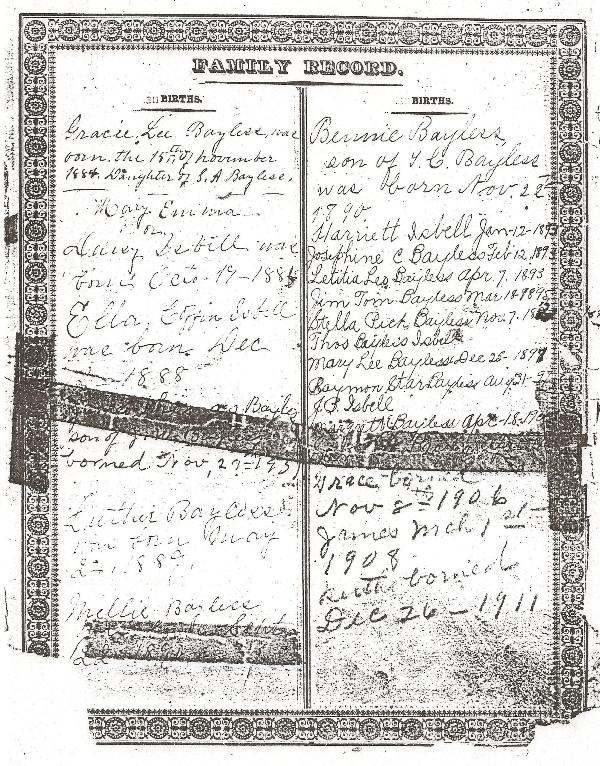 FAMILY RECORD.
BIRTHS.
Gracie Lee Bayless, was
born the 15th of november
1884 Daughter of S. A Bayless.
Mary Emma
or
Daisy Isbill was
born Octo. 19 - 188
Ella, Effie Isbell
was born Dec
1888
Bayles
son of
borned Nov, 27 - 19
Luther Bayless
was born May
2 1889.
Mellie Bayless
BIRTHS.
Bennie Bayless,
son of T. C. Bayless
was born Nov. 22
1890
Harriett Isbell Jan-12-1893
Josephine C Bayless Feb 12, 1893
Letitia Lee Bayless apr. 7. 1893
Jim Tom Bayless Mar 18-189
Stella Rich Bayless Nov 7. 18
Thos Isbell
Mary Lee Bayless Dec 25 - 1897
Raymon Star Bayless Aug 31 -
J. P. Isbell
Bayless Apr-18-19
Grace borned
Nov 8th 1906
James Mch 1st -
1908
borned
Dec 26 - 1911